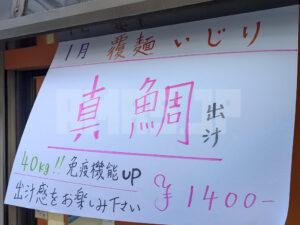 1月 覆麺いじり
真鯛 出汁
40kg!! 免疫機能UP
出汁感をお楽しみ下さい ¥1400-